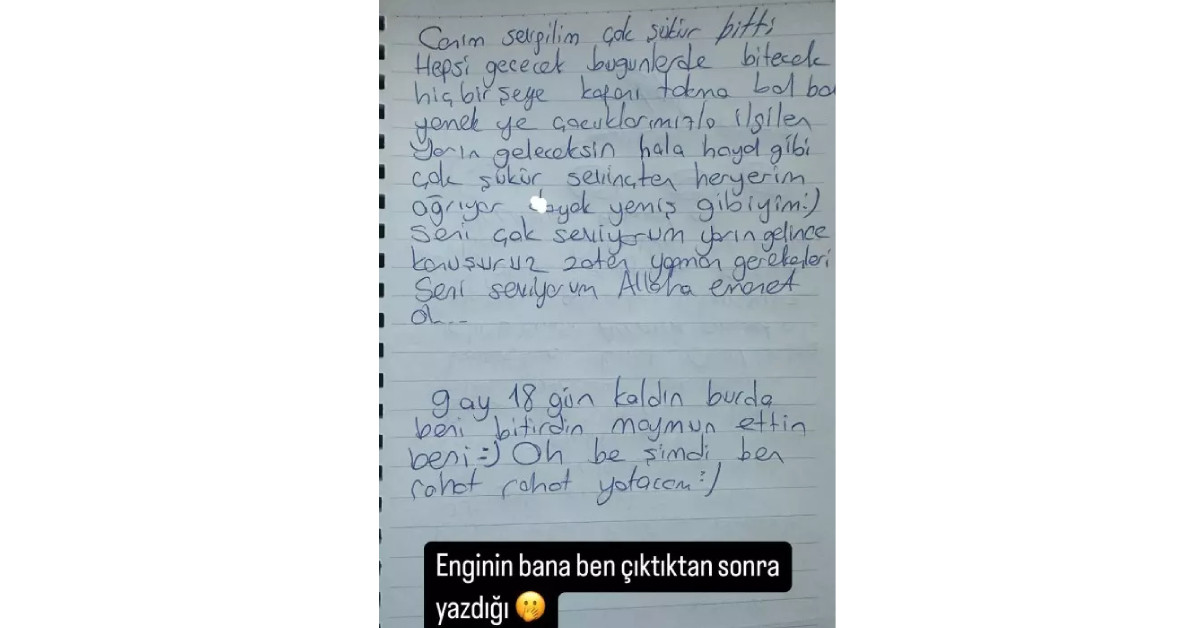 Canım sevgilim çok şükür bitti
Hepsi geçecek bugünlerde bitecek
hiçbirşeye kafanı takma bol bo
yemek ye çocuklarımızla ilgilen
Yarın geleceksin hala hayal gibi
çok şükür sevinçten heryerim
ağrıyor dayak yemiş gibiyim:)
Seni çok seviyorum yarın gelince
konuşuruz zaten yapman gerekenleri
Seni seviyorum Allaha emanet
Ol...
9 ay 18 gün kaldın burda
beni bitirdin maymun ettin
beni=) Oh be şimdi ben
rahat rahat yatacam:)
Enginin bana ben çıktıktan sonra
yazdığı 🤭